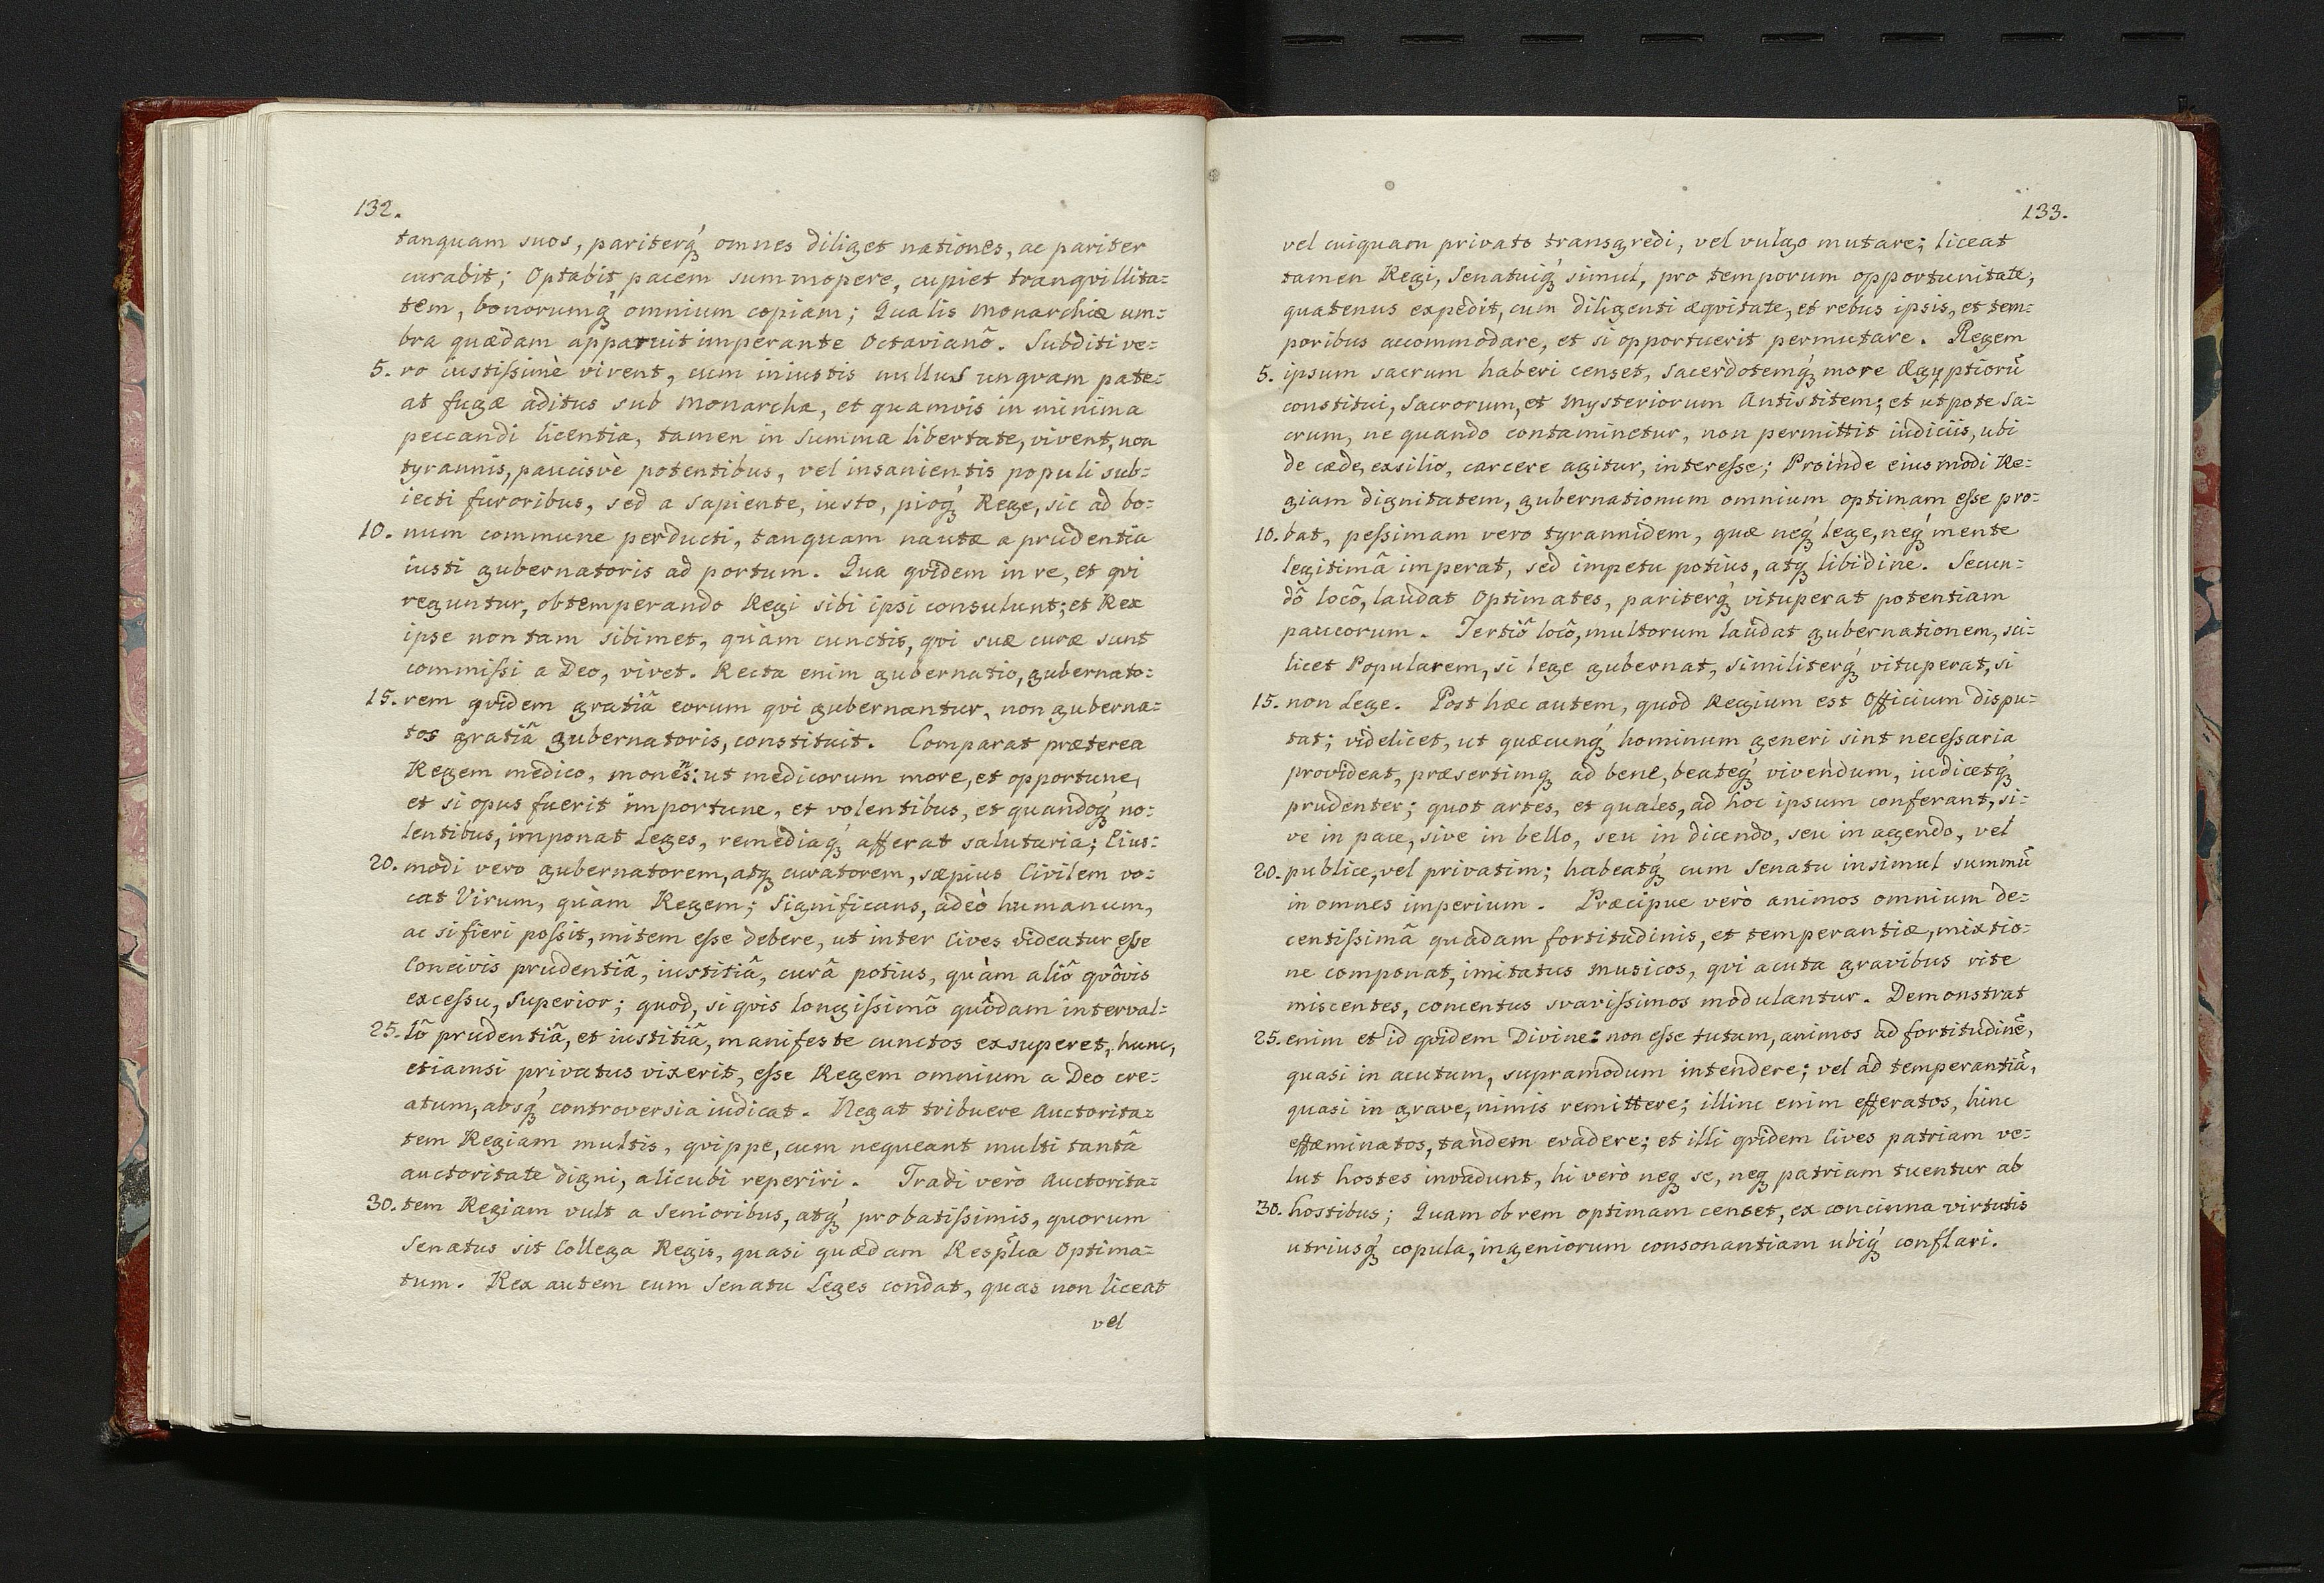 132.
tanquam suos, pariterq́ꝫ omnes diliget nationes, ac pariter
curabit; Optabit pacem summopere, cupiet tranqvillita=
tem, bonorumq́ꝫ omnium copiam; Qualis Monarchiæ um=
bra quædam apparuit imperante Octavianô. Subditi ve=
5. ro iustiſsimè vivent, cum iniustis nullus unqvam pate=
at fugæ aditus sub Monarcha, et quamvis in minima
peccandi licentia, tamen in summa libertate, vivent, non
tyrannis, paucisvè potentibus, vel insanientis populi sub=
iecti furoribus, sed a sapiente, iusto, pioq́ꝫ Rege, sic ad bo=
10. num commune perducti, tanquam nautæ a prudentia
iusti gubernatoris ad portum. Qua qvidem in re, et qvi
reguntur, obtemperando Regi sibi ipsi consulunt; et Rex
ipse non tam sibimet, quàm cunctis, qvi suæ curæ sunt
commiſsi a Deo, vivet. Recta enim gubernatio, gubernato=
15. rem qvidem gratiâ eorum qvi gubernantur, non guberna=
tos gratiâ gubernatoris, constituit. Comparat præterea
Regem medico, moneñs: ut medicorum more, et opportune,
et si opus fuerit importune, et volentibus, et quandoq́ꝫ no=
lentibus, imponat Leges, remediaq́ꝫ afferat salutaria; Eius=
20. modi vero gubernatorem, atqꝫ curatorem, sæpius Civilem vo=
cat Virum, quàm Regem; significans, adeò humanum,
ac si fieri poſsit, mitem eſse debere, ut inter Cives videatur eſse
Concivis prudentiâ, iustitiâ, curâ potius, quàm aliô qvôvis
exceſsu, superior; quod, si qvis longiſsimô quôdam interval=
25. lô prudentiâ, et iustitiâ, manifeste cunctos exsuperet, hunc,
etiamsi privatus vixerit, eſse Regem omnium a Deo cre=
atum, absq́ꝫ controversia iudicat. Negat tribuere Auctorita=
tem Regiam multis, qvippe, cum nequeant multi tantâ
auctoritate digni, alicubi reperiri. Tradi verò Auctorita=
30. tem Regiam vult a Senioribus, atq́ꝫ probatiſsimis, quorum
Senatus sit Collega Regis, quasi quædam Resp̃lca Optima=
tum. Rex autem cum Senatu Leges condat, quas non liceat
vel
133.
vel cuiquam privato transgredi, vel vulgo mutare; liceat
tamen Regi, Senatuiq́ꝫ simul, pro temporum opportunitate,
quatenus expedit, cum diligenti æqvitate, et rebus ipsis, et tem=
poribus accommodare, et si opportuerit permutare. Regem
5. ipsum sacrum haberi censet, Sacerdotemq́ꝫ more Ægyptiorũ
constitui, Sacrorum, et Mysteriorum Antistitem; et utpote Sa=
crum, ne quando contaminetur, non permittit iudiciis, ubi
de cæde, exsilio, carcere agitur, intereſse; Proinde eiusmodi Re=
giam dignitatem, gubernationum omnium optimam eſse pro=
10. bat, peſsimam vero tyrannidem, quæ neq́ꝫ lege, neq́ꝫ mente
legitimâ imperat, sed impetu potius, atqꝫ libidine. Secun=
dô locô, laudat Optimates, pariterq́ꝫ vituperat potentiam
paucorum. Tertiô locô, multorum laudat gubernationem, sci=
licet Popularem, si lege gubernat, similiterq́ꝫ vituperat, si
15. non Lege. Post hæc autem, quod Regium est Officium dispu=
tat; videlicet, ut quæcunq́ꝫ hominum generi sint neceſsaria
provideat, præsertimqꝫ ad bene, beateq́ꝫ vivendum, iudicetq́ꝫ
prudenter; quot artes, et quales, ad hoc ipsum conferant, si=
ve in pace, sive in bello, seu in dicendo, seu in agendo, vel
20. publice, vel privatim; habeatq́ꝫ cum Senatu insimul summũ
in omnes imperium. Præcipue verò animos omnium de=
centiſsimâ quadam fortitudinis, et temperantiæ, mixtio=
ne componat, imitatus Musicos, qvi acuta gravibus rite
miscentes, concentus svaviſsimos modulantur. Demonstrat
25. enim et id qvidem Divine: non eſse tutum, animos ad fortitudinẽ,
quasi in acutum, supramodum intendere; vel ad temperantiã,
quasi in grave, nimis remittere; illinc enim efferatos, hinc
effæminatos, tandem evadere; et illi qvidem Cives patriam ve=
lut hostes invadunt, hi verò neqꝫ se, neqꝫ patriam tuentur ab
30. hostibus; Quam ob rem optimam censet, ex concinna virtutis
utriusq́ꝫ copula, ingeniorum consonantiam ubiq́ꝫ conflari.